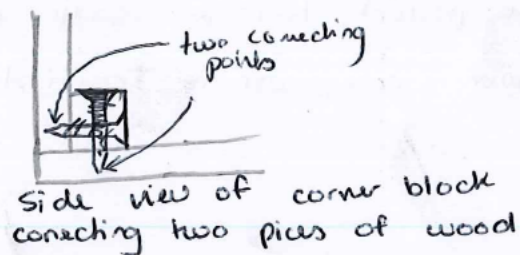 two conecting
points
Side view of corner block
conecting two pices of wood